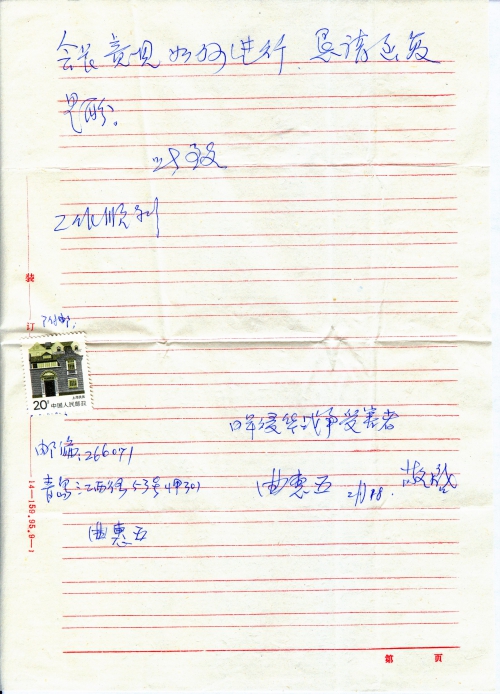 会长意见如何进行.恳请函复
是盼。
此致
工作顺利
装
订
附邮:
上海民居
20分
中国人民邮政
日军侵华战争受害者
邮编:266071
青岛江西路53号甲301
曲惠五 2月18. 敬啓
曲惠五
14—159.95.9—1
第 页